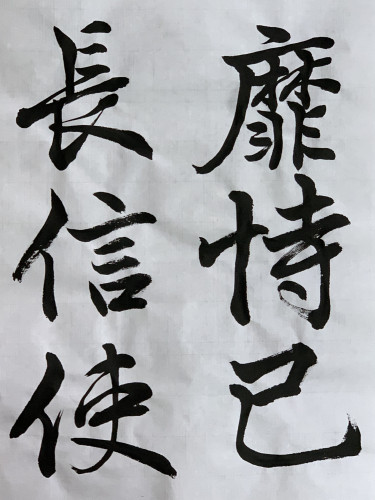 靡恃己
長信使